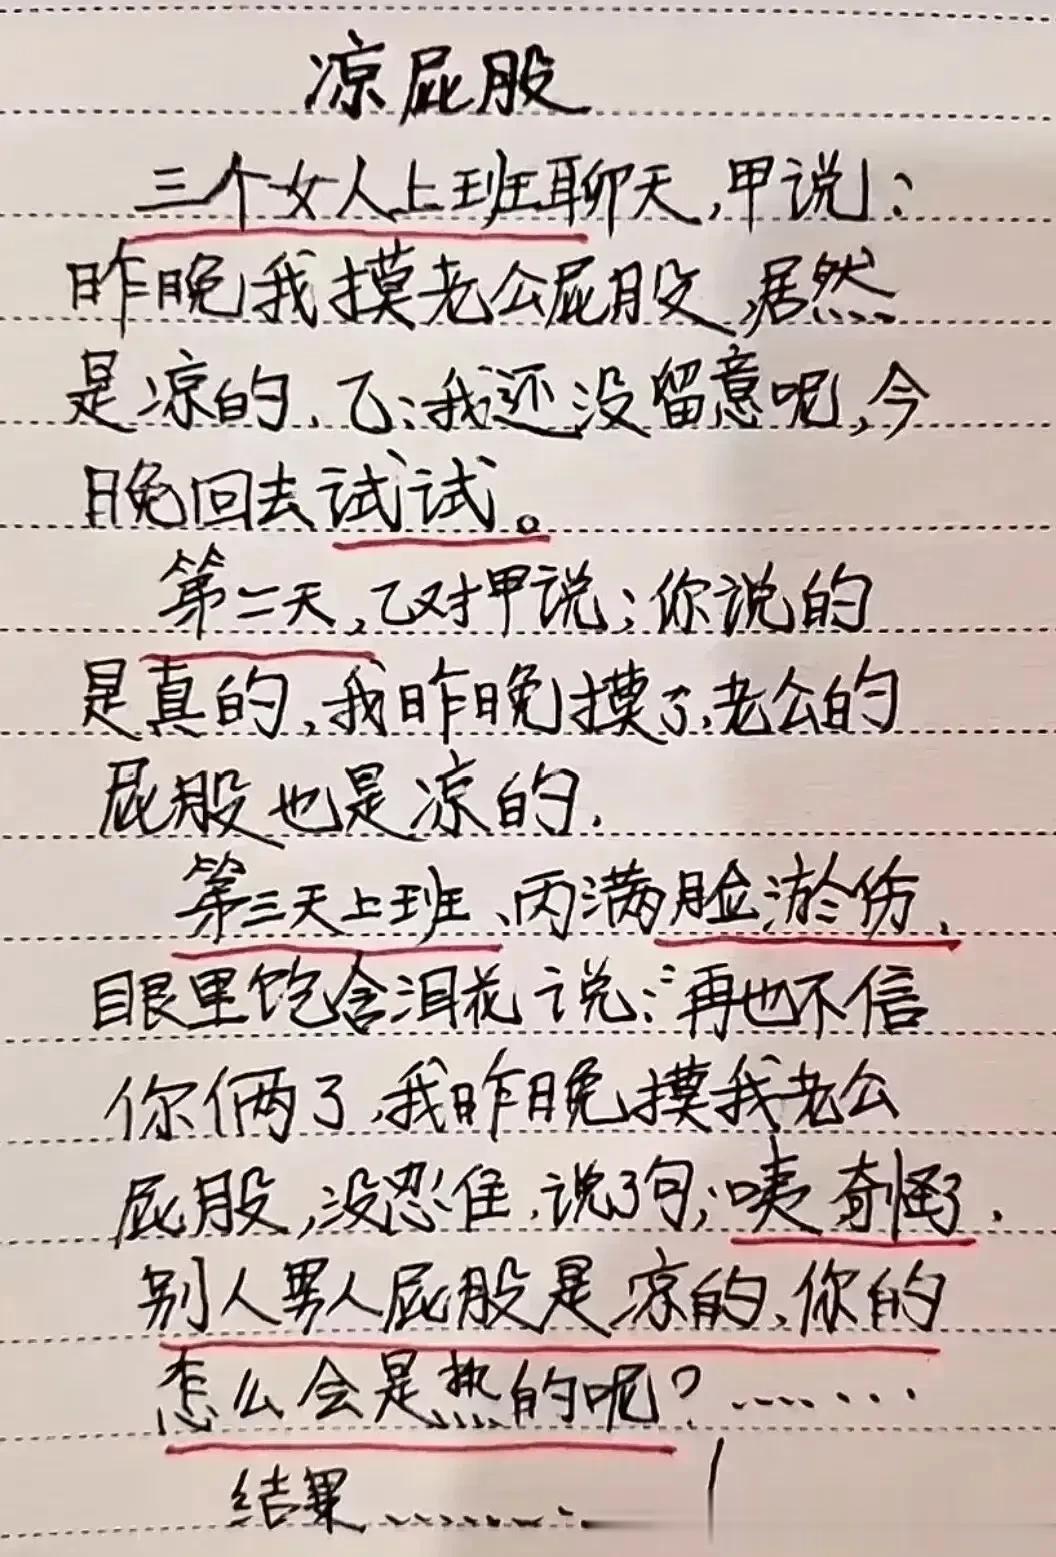 凉屁股
三个女人上班聊天,甲说:
昨晚我摸老公屁股,居然
是凉的,乙:我还没留意呢,今
晚回去试试。
第二天,乙对甲说;你说的
是真的,我昨晚摸了,老公的
屁股也是凉的.
第三天上班、丙满脸淤伤,
眼里饱含泪花说:"再也不信
你俩了,我昨晚摸我老公
屁股,没忍住,说了句;咦奇怪了.
别人男人屁股是凉的、你的
怎么会是热的呢?……
结果………